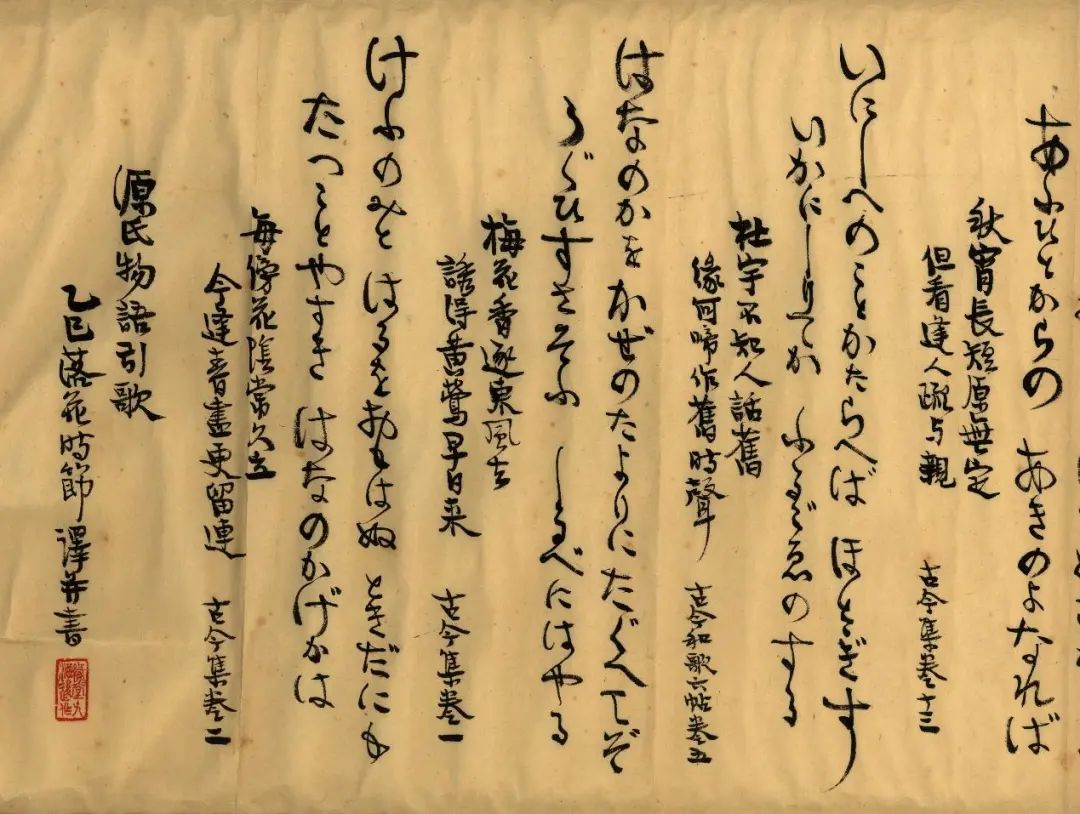 あふひとからの あきのよなれば
秋宵長短原無定
但看逢人疏与親 古今集卷十三
いにしへのことかたらへば ほとゝぎす
いかにしりてか ふるごゑのする
杜宇不知人話舊
緣何啼作舊時聲 古今和歌六帖卷五
はなのかを かぜのたよりにたぐへてぞ
うぐひすさそふ しるべにはやる
梅花香逐東風去
誘得黃鶯早日来 古今集卷一
けふのみと はるをおもはぬ ときだにも
たつことやすき はなのかげかは
每傍花陰常久立
今逢春盡更留連 古今集卷二
源氏物語引歌
乙巳落花時節譯并書